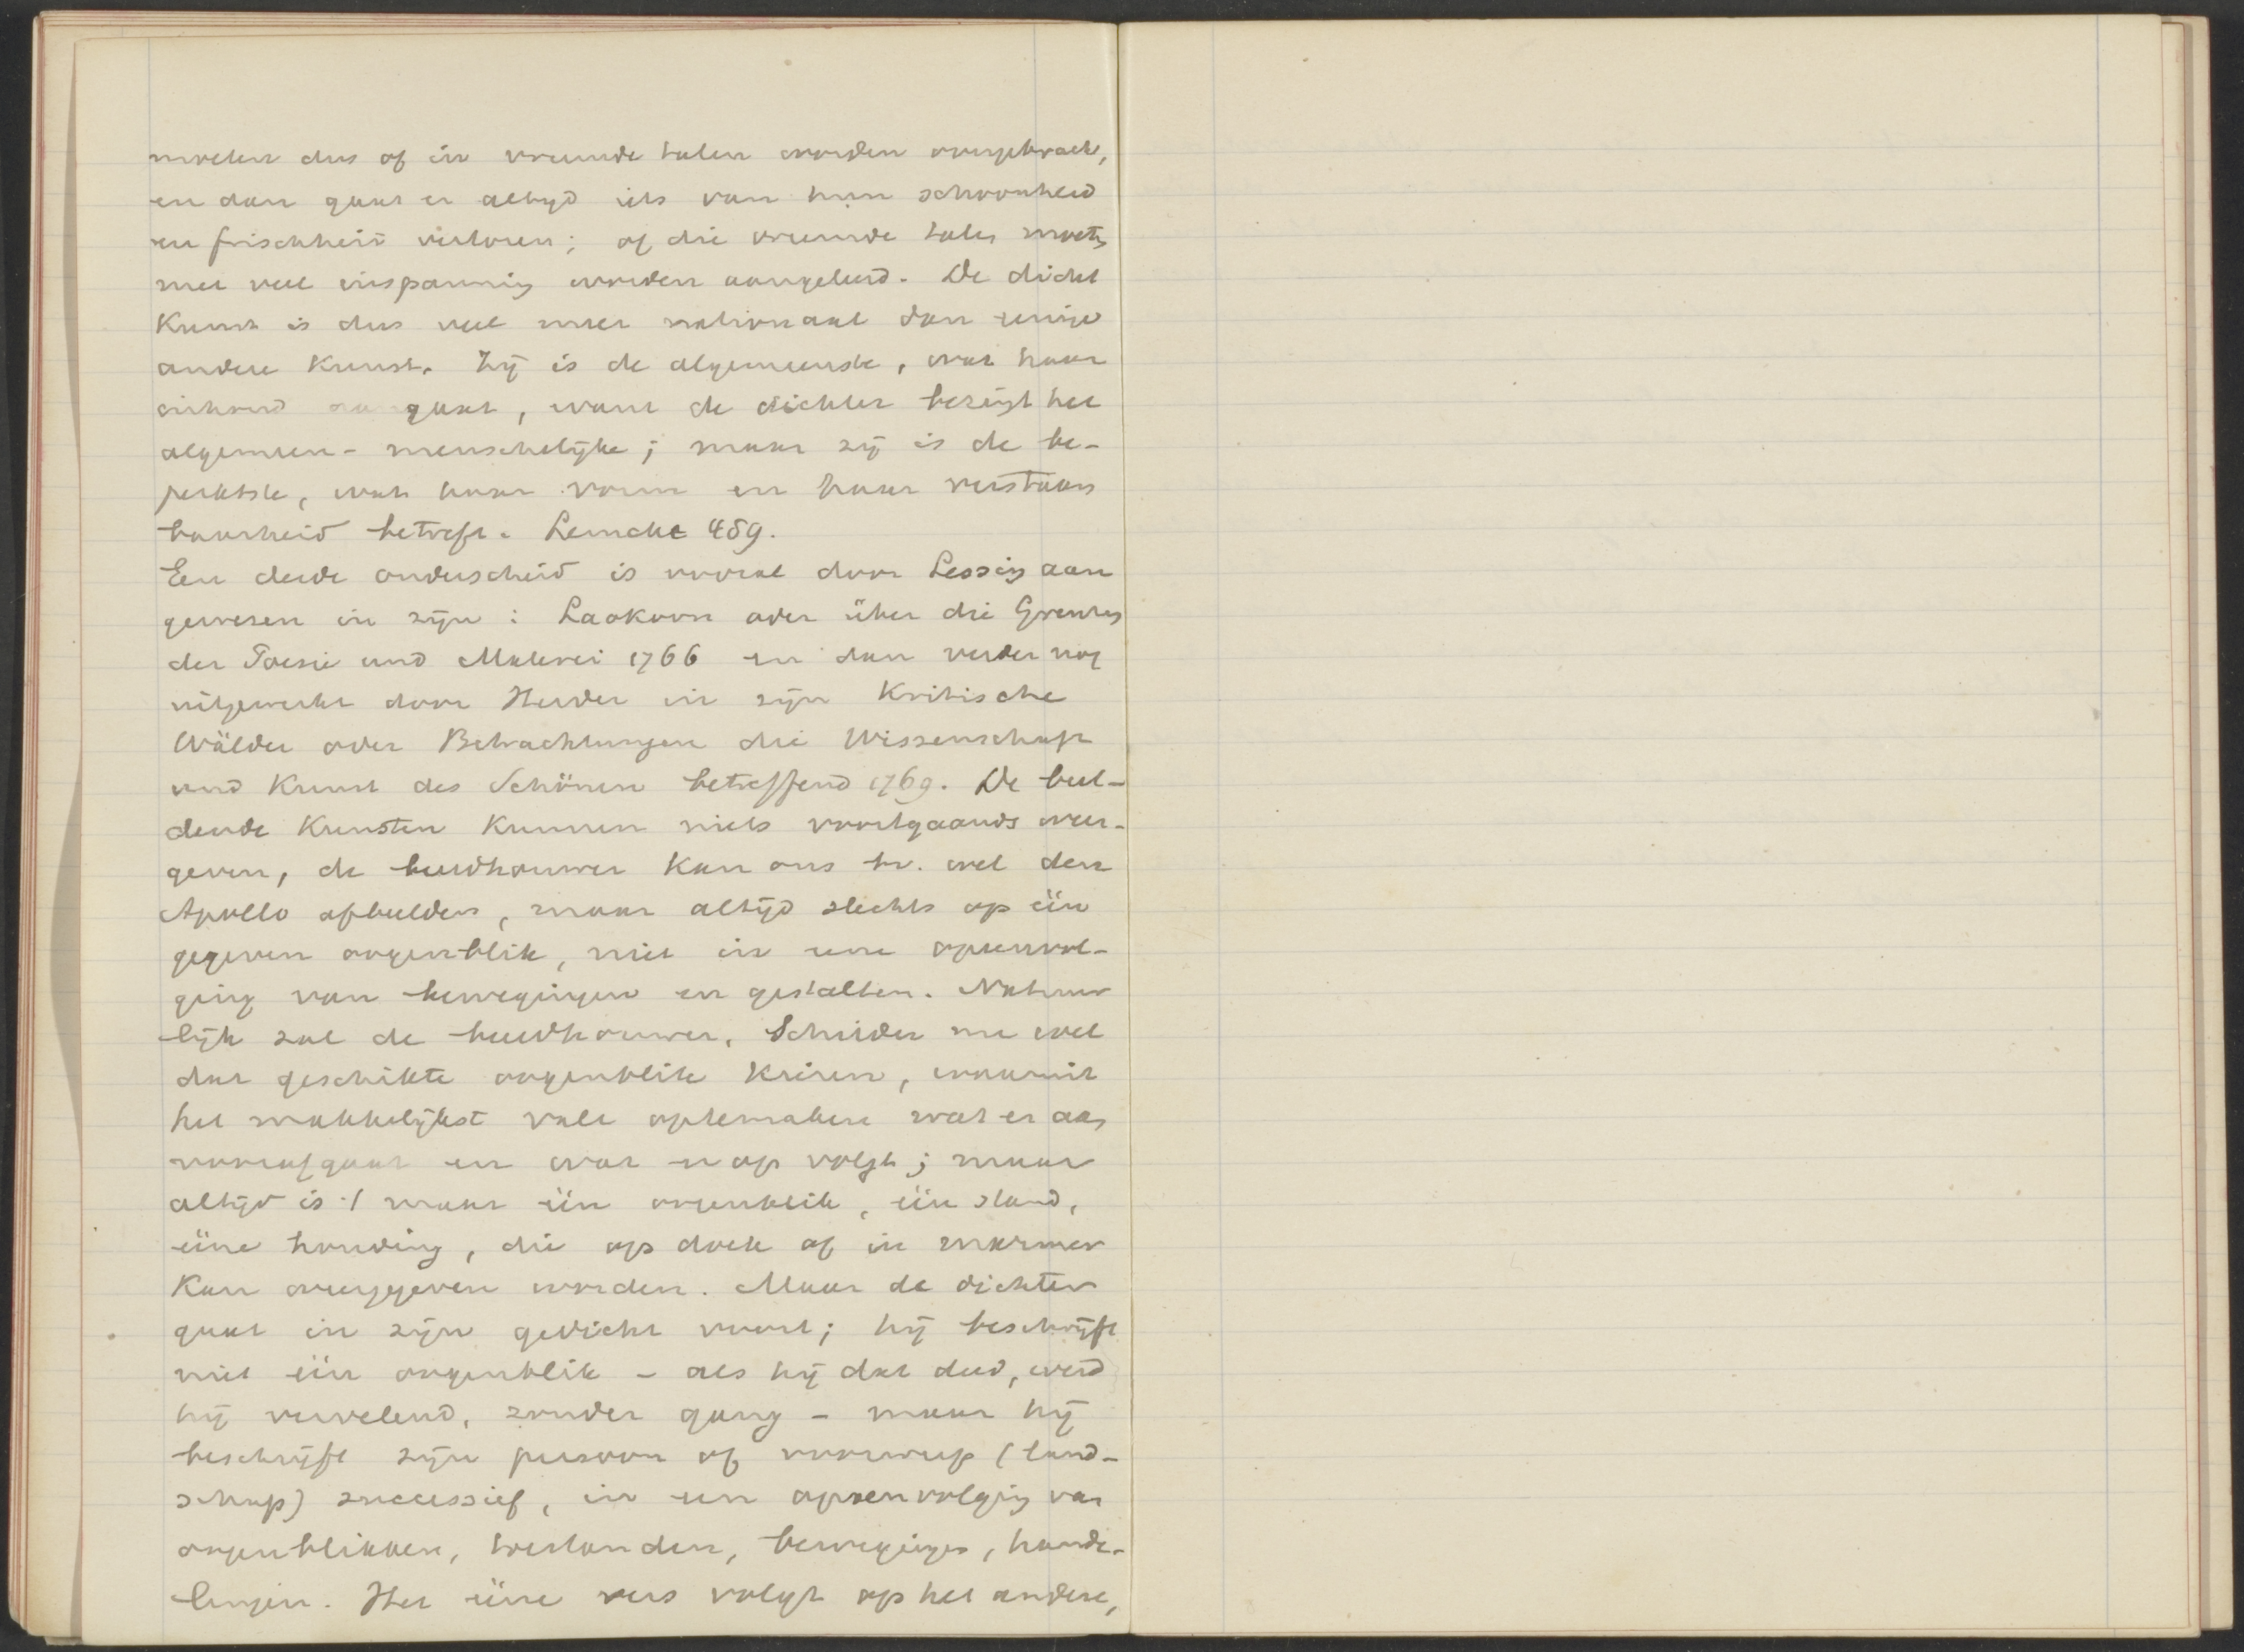 moeten dus of in vreemde talen worden overgebracht,
en dan gaat er altijd iets van hun schoonheid
en frischheid verloren; of die vreemde talen moeten
met veel inspanning worden aangeleerd. De dicht
kunst is dus veel meer nationaal dan eenige
andere kunst. Zij is de algemeenste, wat haar
inhoud aangaat, want de dichter bezingt het
algemeen-menschelijke; maar zij is de be-
perktste, wat haar vorm en haar verstaan
baarheid betreft. Lemcke 459.
Een derde onderscheid is vooral door Lessing aan
gewezen in zijn: Laokoon oder über die Grenzen
der Poesie und Malerei 1766 en dan verder nog
uitgewerkt door Herder in zijn Kritische
Wälder oder Betrachtungen die Wissenschaft
und Kunst des Schönen betreffend 1769. De beel-
dende kunsten kunnen niets voortgaands weer-
geven, de beeldhouwer kan ons bv. wel den
Apollo afbeelden, maar altijd slechts op één
gegeven oogenblik, niet in eene opeenvol-
ging van bewegingen en gestalten. Natuur
lijk zal de beeldhouwer, schilder nu wel
dat geschikte oogenblik kiezen, waaruit
het makkelijkst valt optemaken wat er aan
voorafgaat en wat er op volgt; maar
altijd is 't maar één oogenblik, één stand,
ééne houding, die op doek of in marmer
kan weergegeven worden. Maar de dichter
gaat in zijn gedicht voort; hij beschrijft
niet één oogenblik - als hij dat deed, werd
hij vervelend, zonder gang - maar hij
beschrijft zijn persoon of voorwerp (land-
schap) successief, in een opeenvolging van
oogenblikken, toestanden, bewegingen, hande-
lingen. Het ééne vers volgt op het andere,